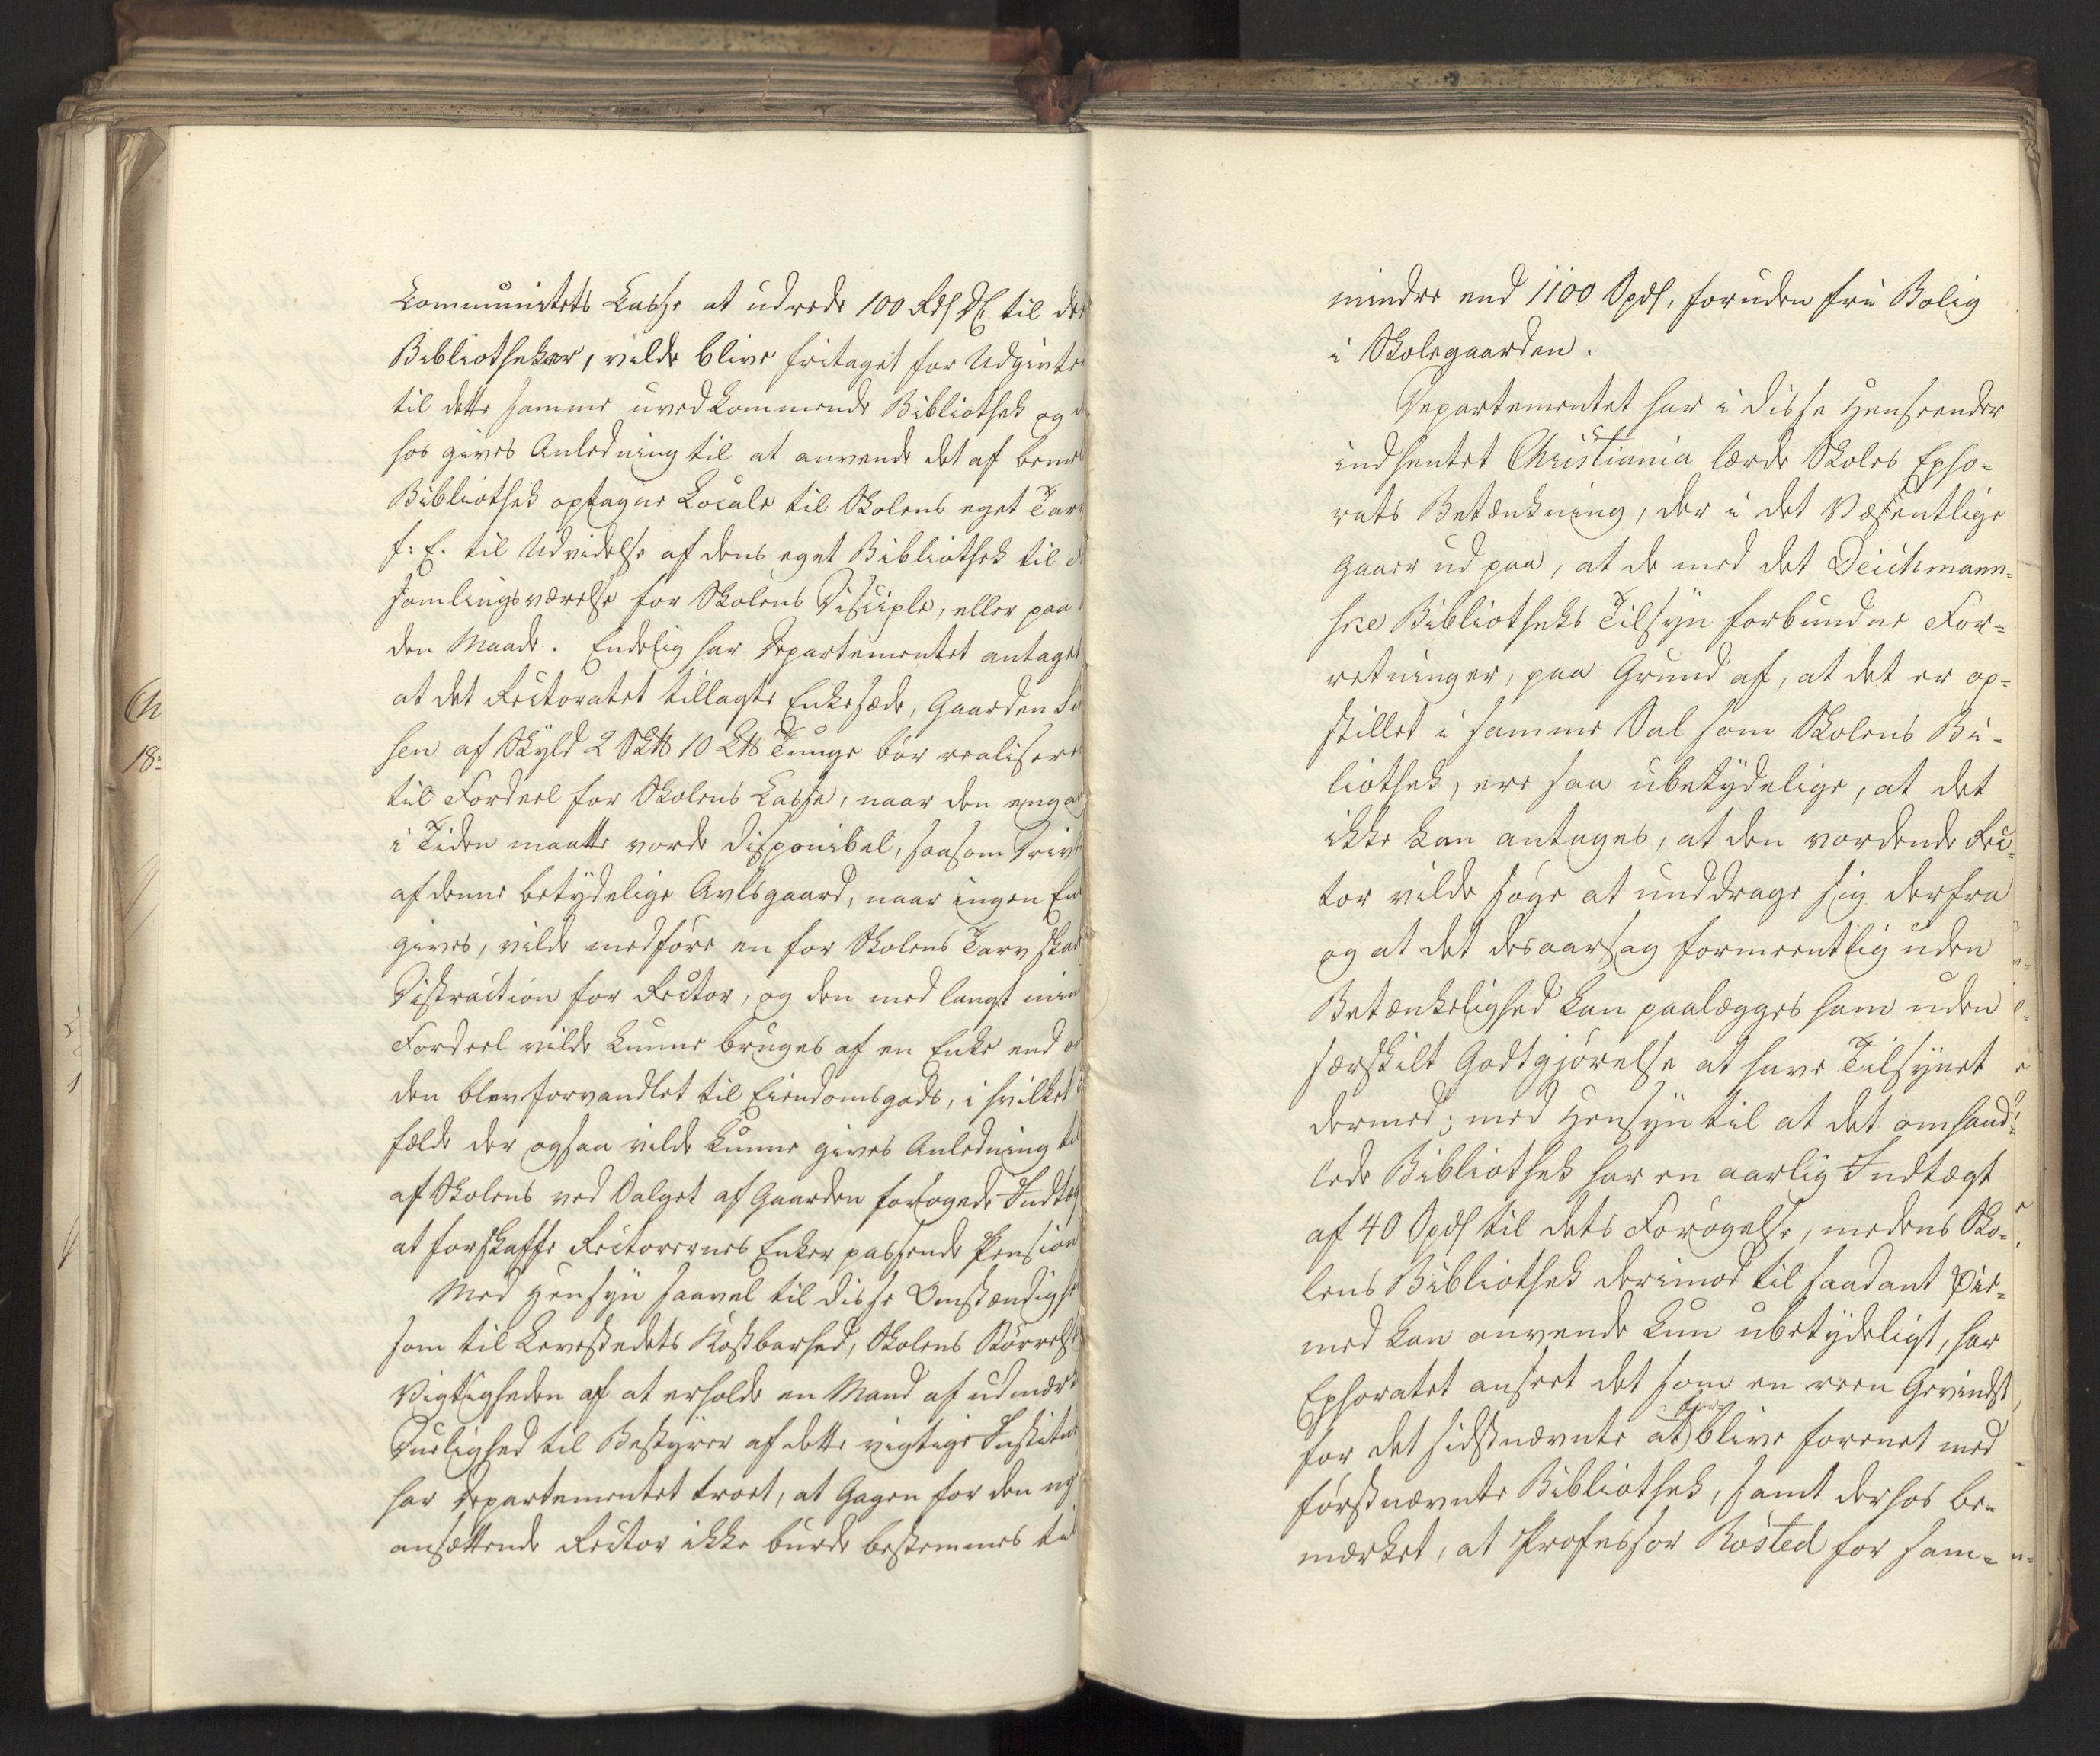 Communitets Casse at udrede 100 Rdl D.C. til den
Bibliothekar, vilde blive fritaget for Udgivter
til dette samme uvedkommende Bibliothek og
hos gives Anledning til at anvende det af bemel
Bibliothek optagne Locale til Skolens eget Tarv
f: E. til Udvidelse af dens eget Bibliothek til
samlingsværelse for Skolens Disciple, eller paa
den Maade. Endelig har Departementet antaget
at det Rectoratet tillagte Enkesæde, Gaarden
sen af Skyld 2 Sk℔ 10 L℔ Tunge bör realiseres
til Fordeel for Skolens Casse, naar den engang
i Tiden maatte vorde disponibel, saasom Drivt
af denne betydelige Avlsgaard, naar ingen En
gives, vilde medføre en for Skolens Tarv skad
Distraction for Rector, og den med langt min
Fordeel vilde kunne bruges af en Enke end
den blev forvandlet til Eiendomsgods, i hvilket
fælde der ogsaa vilde kunne gives Anledning til
af Skolens ved Salget af Gaarden forøgede Indtægt
at forskaffe Rectorernes Enker passende Pension
Med Hensyn saavel til disse Omstændighe
som til Levestedets Kostbarhed, Skolens Størrelse
Vigtigheden af at erholde en Mand af udmærk
Duelighed til Bestyrer af dette vigtige Institut
har Departementet troet, at Gagen for den ny
ansættende Rector ikke burde bestemmes til
Ch
18:
mindre end 1100 Spdl, foruden fri Bolig
i Skolegaarden.
Departementet har i disse Henseender
indhentet Christiania lærde Skoles Epho-
rats Betænkning, der i det Væsentlige
gaaer ud paa, at de med det Deichmann-
ske Bibliotheks Tilsyn forbundne For-
retninger, paa Grund af, at det er op-
stillet i samme Sal som Skolens Bi-
liothek, ere saa ubetydelige, at det
ikke kan antages, at den vordende Rec-
tor vilde søge at unddrage sig derfra
og at det desaarsag formeentlig uden
Betænkelighed kan paalægges ham uden
særskilt Godtgjørelse at have Tilsynet
dermed; med Hensyn til at det omhand-
lede Bibliothek har en aarlig Indtægt
af 40 Spdl til dets Forøgelse, medens Sko-
lens Bibliothek derimod til saadant Øie-
med kan anvende kun ubetydeligt, har
Ephoratet anseet det som en reen Gevindst
for det sidstnævnte at blive forenet med
førstnævnte Bibliothek, samt derhos be-
mærket, at Professor Rosted for sam-